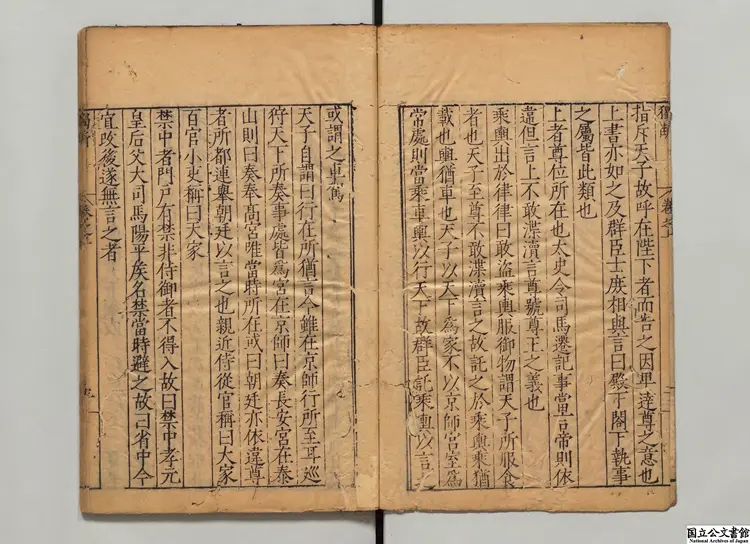 指斥天子故呼在陛下者而告之因卑達尊之意也
上書亦如之及群臣士庶相與言曰殿下閤下執事
之屬皆此類也
上者尊位所在也太史令司馬遷記事當言帝則依
違但言上不敢渫瀆言尊號尊王之義也
乘輿出於律律曰敢盗乘輿服御物謂天子所服食
者也天子至尊不敢渫瀆言之故託之於乘輿乘猶
載也輿猶車也天子以天下為家不以京師宮室為
常處則當乘車輿以行天下故群臣託乘輿以言之
或謂之車駕
天子自謂曰行在所猶言今雖在京師行所至耳巡
狩天下所奏事處皆為宮在京師曰奏長安宮在泰
山則曰奏奉高宮唯當時所在或曰朝廷亦依違尊
者所都連舉朝廷以言之也親近侍從官稱曰大家
百官小吏稱曰天家
禁中者門戶有禁非侍御者不得入故曰禁中孝元
皇后父大司馬陽平矦名禁當時避之故曰省中今
宜改後遂無言之者
国立公文書館
National Archives of Japan